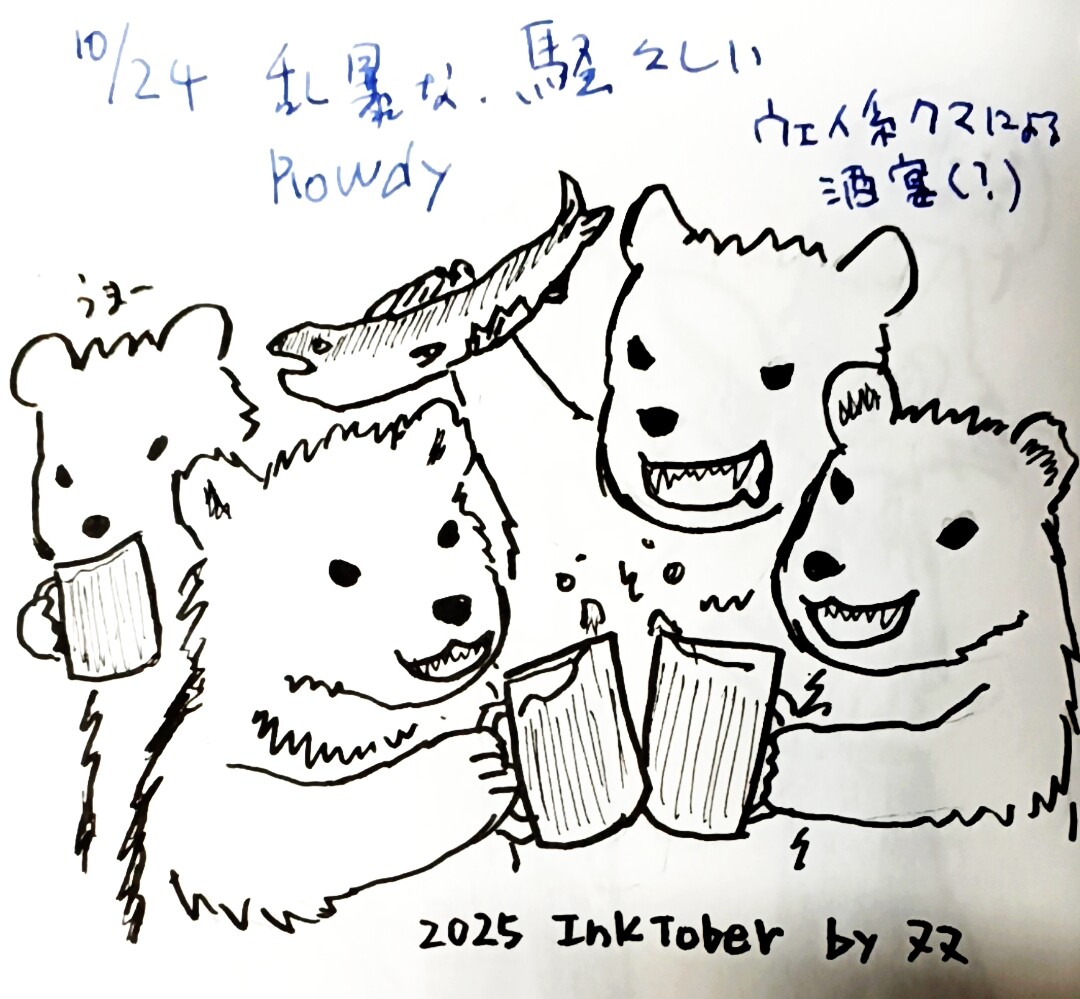 10/24 乱暴な、騒々しい
Rowdy
ウェイ系クマによる
酒宴(?)
うまー
2025 InkTober by ヌヌ